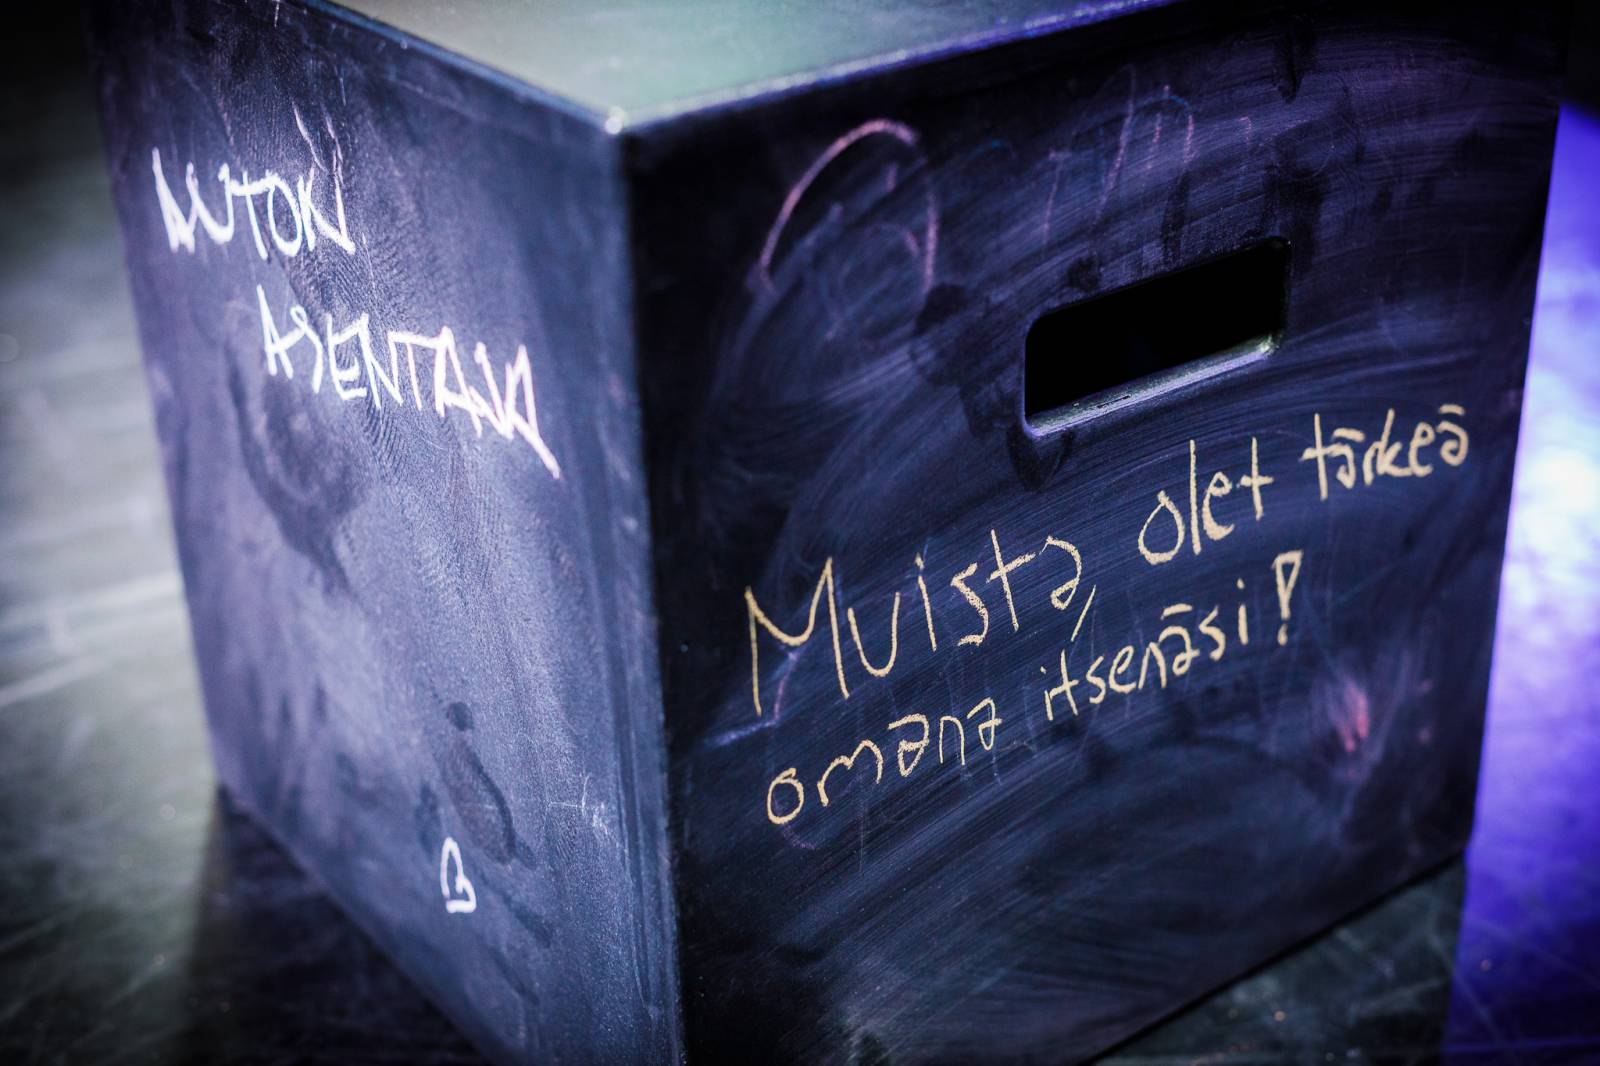 AUTON
ASENTAJA
Muista, olet tärkeä
omana itsenäsi!